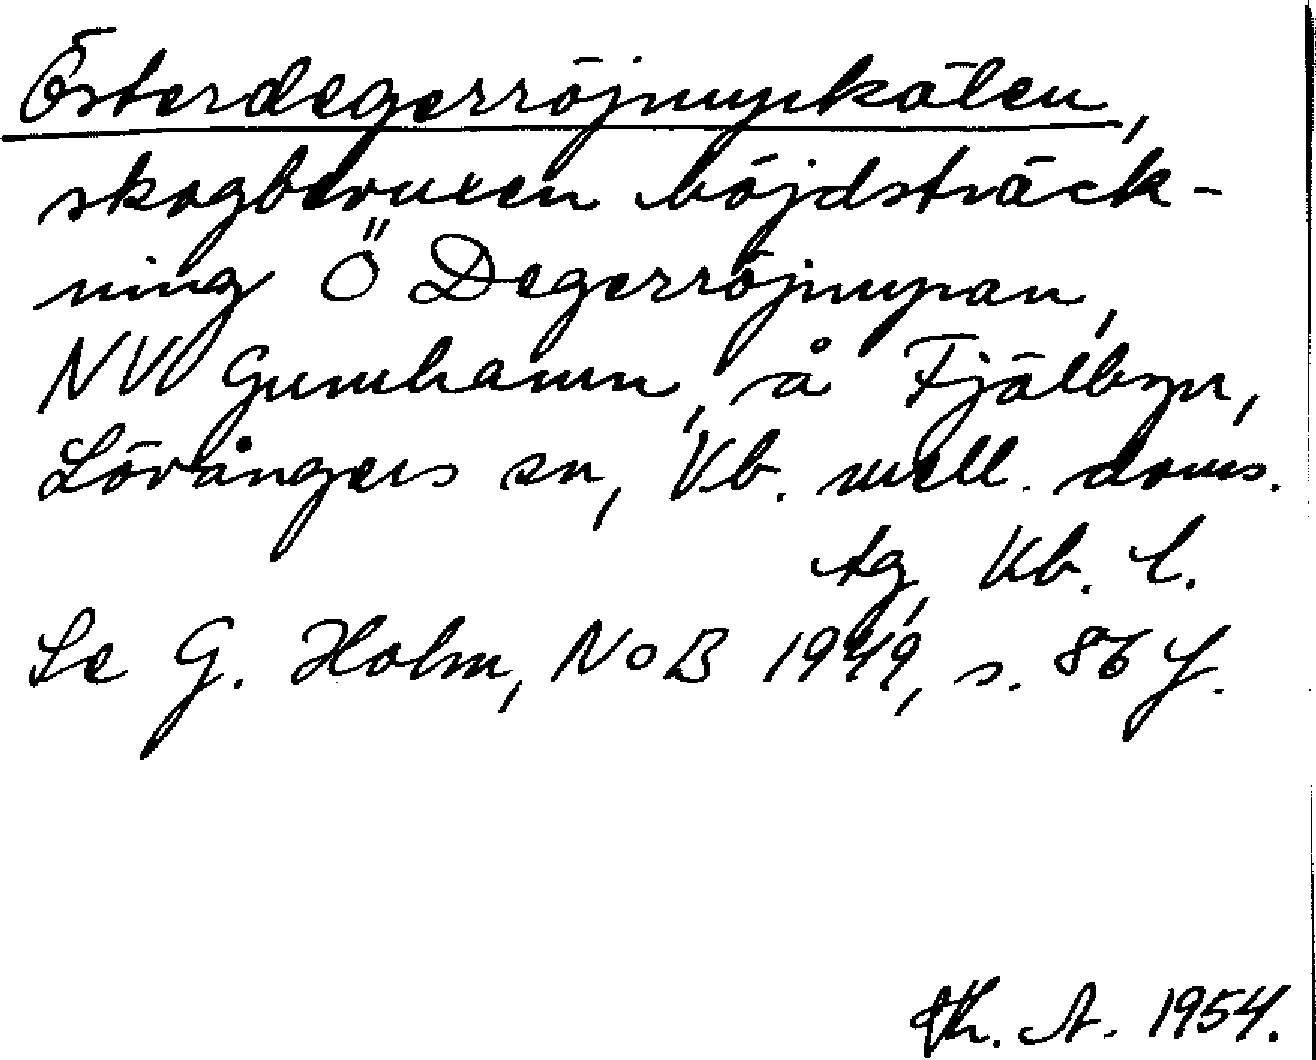 Österdegerröjmyrkälen,
skogbevuxen höjdsträck-
ning Ö Degerröjmyran,
NV Gumhamn, å Fjälbyn,
Lövångers sn, Vb. mell. doms.
tg, Vb. l.
Se G. Holm, NoB 1949, s. 86 f.
Th. A. 1954.